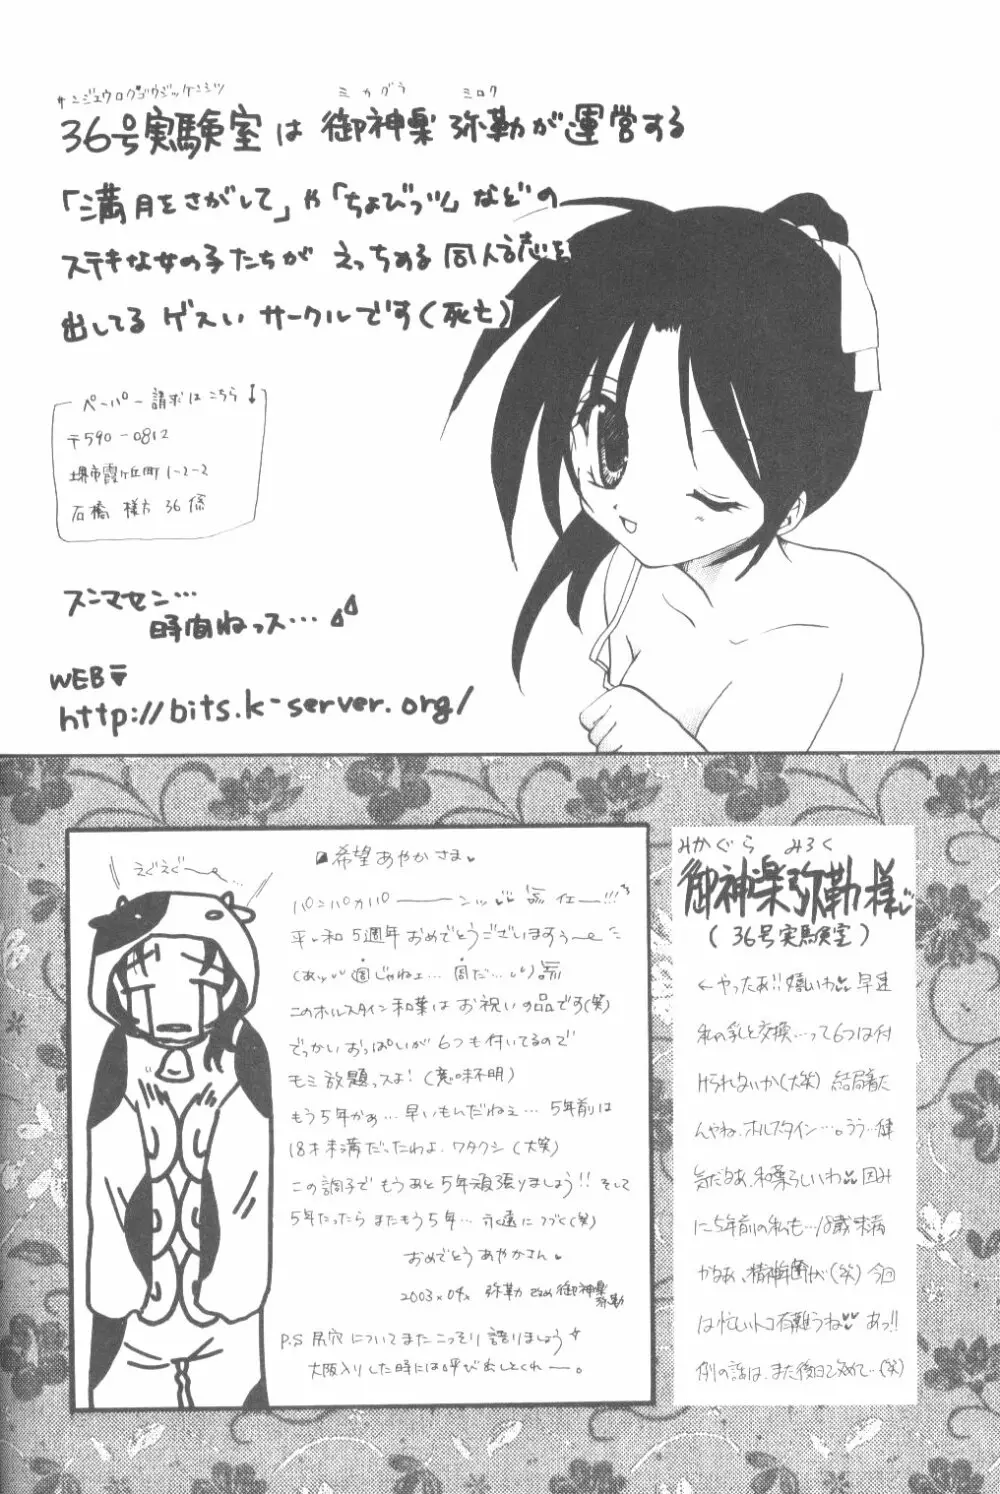 サンジュウロクゴウジッケンシツ ミカグラ ミロク
36号実験室は 御神楽 弥勒が運営する
「満月をさがして」や「ちょびっツ」などの
ステキな女の子たちが えっちめる同人誌を
出してる ゲスい サークルです(死亡)
ペーパー請求はこちら↓
〒590-0812
堺市霞ヶ丘町1-2-2
石橋 様方 36係
スンマセン…
時間ねっス…
WEB
http://bits.k-server.org/
えぐえぐ〜…
希望あやかさま
パンパカパーーーンッ
平和5週年おめでとうございますぅ〜
(あッ 週じゃねェ… 周だ…
このホルスタイン和葉は お祝いの品です(笑)
でっかいおっぱいが6つも付いてるので
モミ放題っスよ!(意味不明)
もう5年かぁ…早いもんだねぇ…5年前は
18才未満だったわよ、ワタクシ(大笑)
この調子でもうあと5年頑張りましょう!!そして
5年たったらまたもう5年…永遠につづく(笑)
おめでとうあやかさん
2003×04× 弥勒 改め 御神楽弥勒
P.S 尻穴についてまたこっそり語りましょう
大阪入りした時には呼び出しとくれー。
みかぐら みろく
御神楽弥勒様
(36号実験室)
←やったあ!!嬉しいわ 早速
私の乳と交換…って6つは付
けられないか(大笑) 結局着た
んやね、ホルスタイン…。うう…健
気だなあ、和葉らしいわ 因み
に5年前の私も…18歳未満
かなあ、精神年齢が(笑) 今回
は忙しいトコ有難うね あっ!!
例の話は、また後日改めて…(笑)